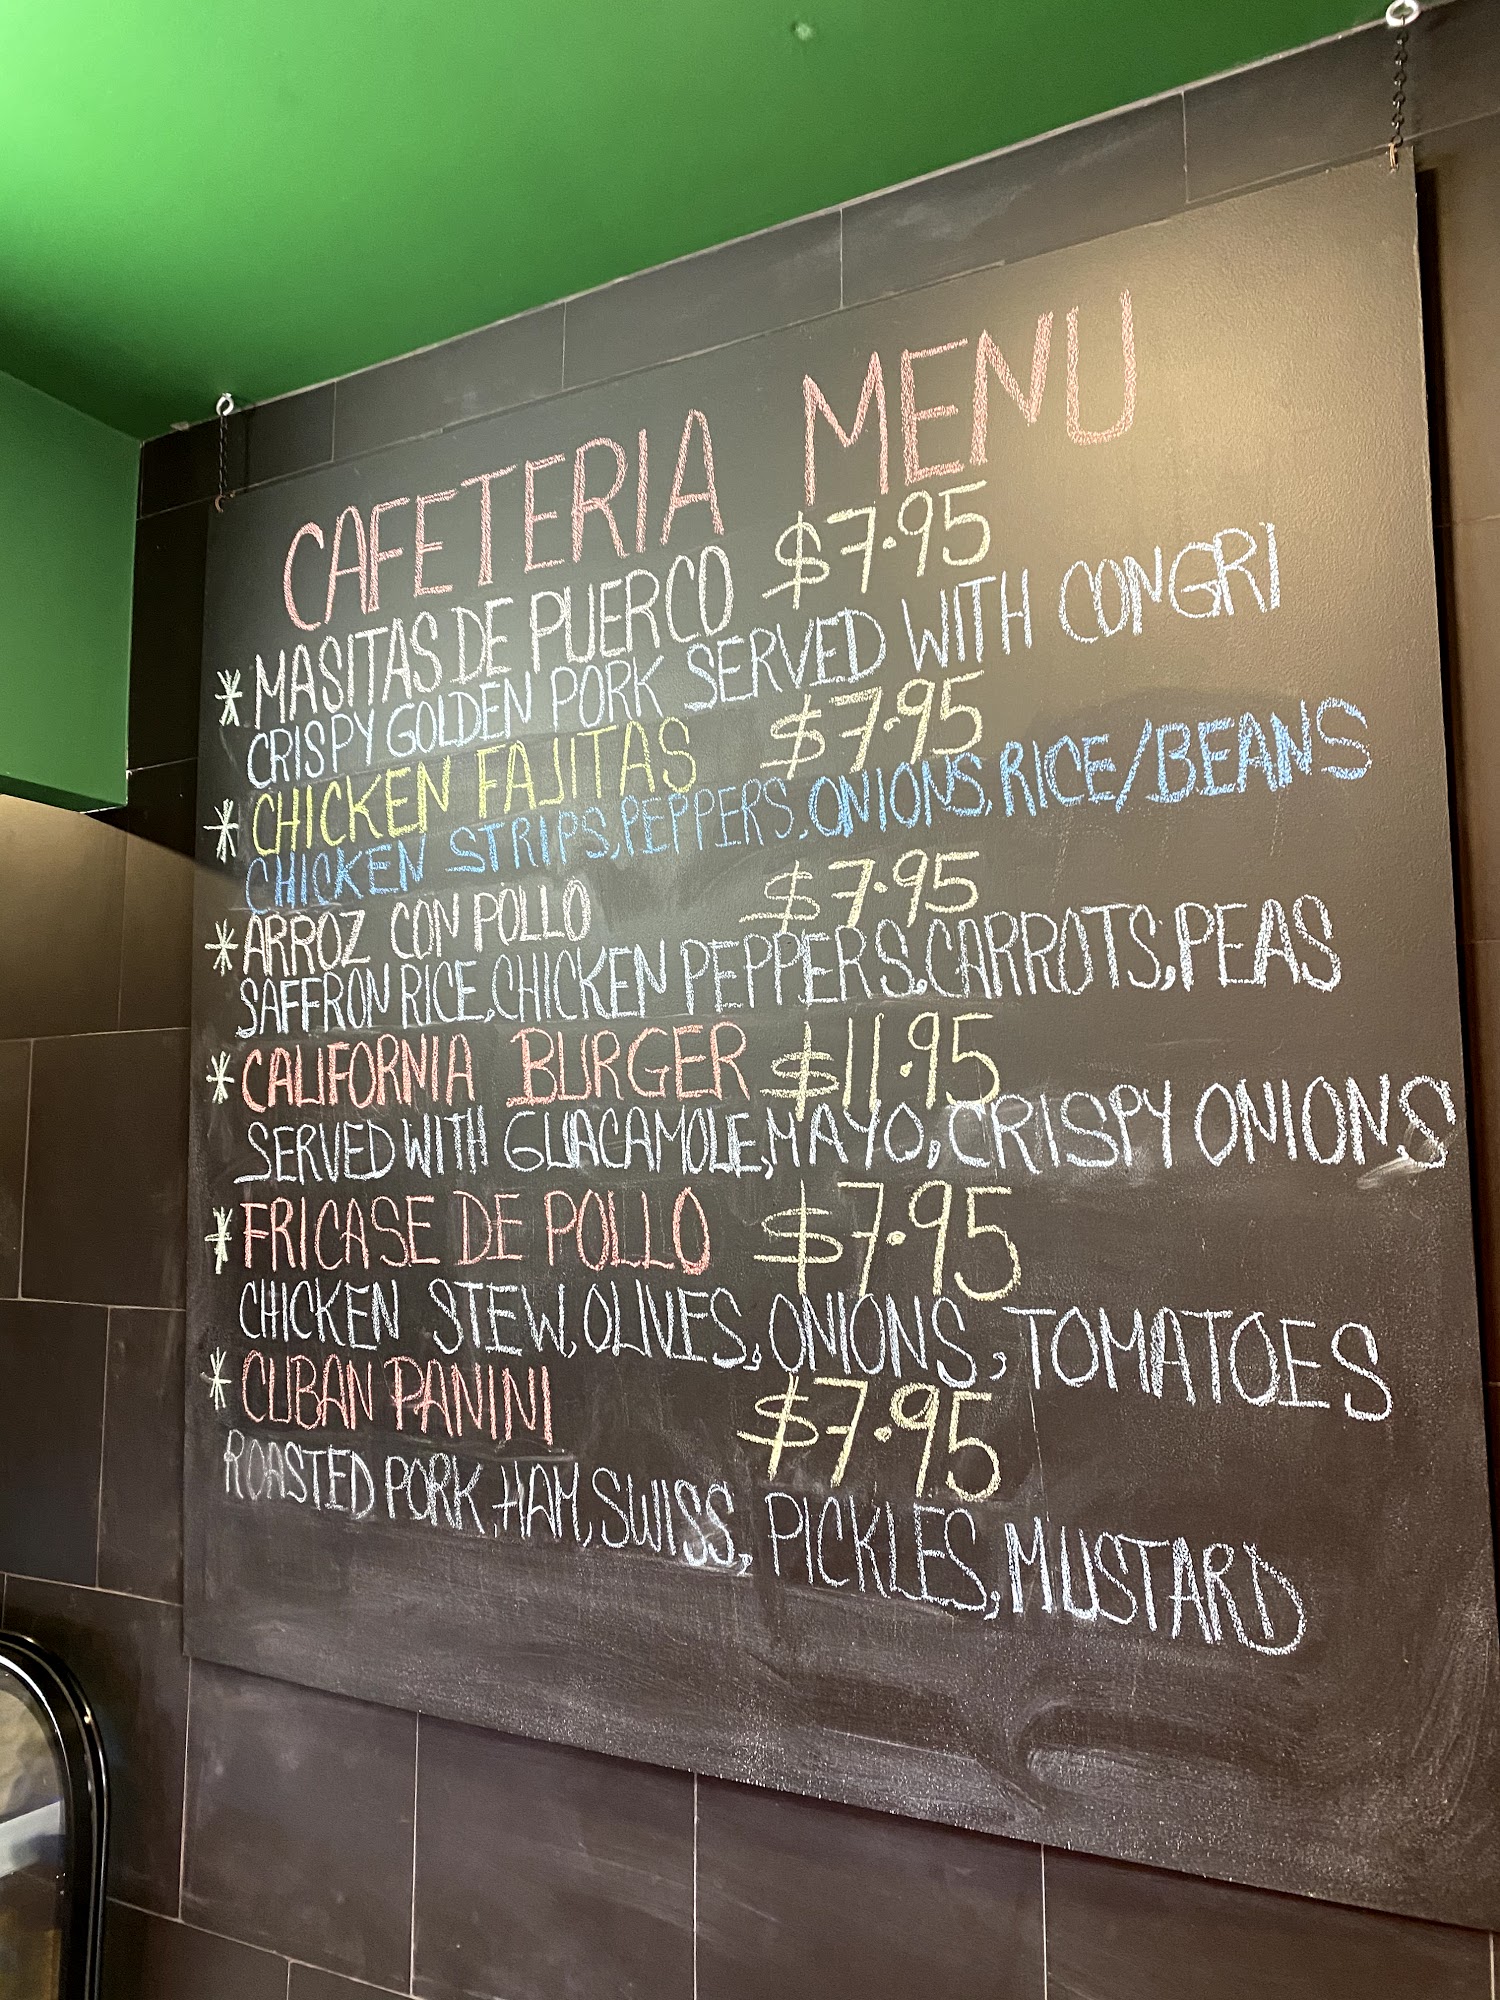 CAFETERIA MENU
* MASITAS DE PUERCO $7.95
CRISPY GOLDEN PORK SERVED WITH CONGRI
* CHICKEN FAJITAS $7.95
CHICKEN STRIPS, PEPPERS, ONIONS, RICE/BEANS
* ARROZ CON POLLO $7.95
SAFFRON RICE, CHICKEN PEPPERS, CARROTS, PEAS
* CALIFORNIA BURGER $11.95
SERVED WITH GUACAMOLE, MAYO, CRISPY ONIONS
* FRICASE DE POLLO $7.95
CHICKEN STEW, OLIVES, ONIONS, TOMATOES
* CUBAN PANINI $7.95
ROASTED PORK, HAM, SWISS, PICKLES, MUSTARD